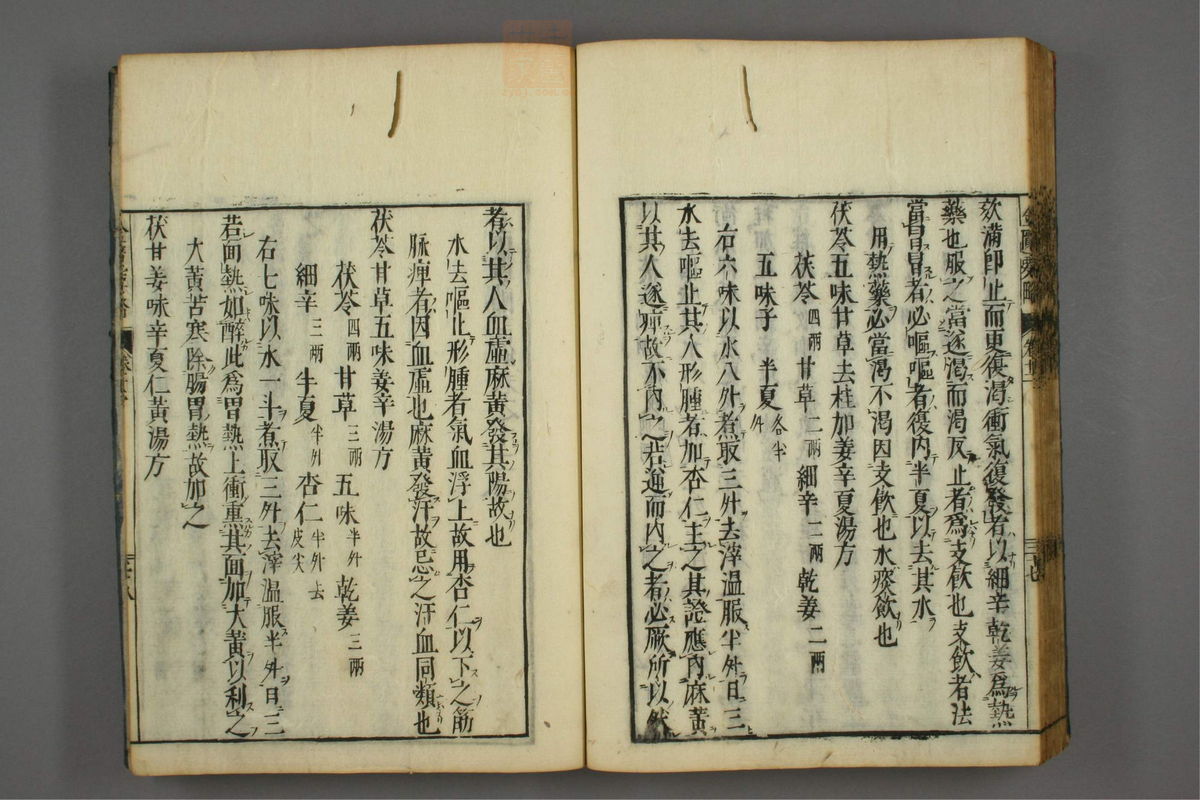 欬滿即止而更復渴衝氣復發者以細辛乾姜爲熱
藥也服之當遂渴而渴反止者爲支飲也支飲者法
當冒冒者必嘔嘔者復内半夏以去其水
用熱藥必當渴不渴因支飲也水痰飲也
茯苓五味甘草去桂加姜辛夏湯方
茯苓四兩 甘草二兩 細辛二兩 乾姜二兩
五味子 半夏各半升
右六味以水八升煮取三升去滓温服半升日三
水去嘔止其人形腫者加杏仁主之其證應内麻黄
以其人遂痺故不内之若逆而内之者必厥所以然
者以其人血虚麻黄發其陽故也
水去嘔止形腫者氣血浮上故用杏仁以下之筋
脉痺者因血虚也麻黄發汗故忌之汗血同類也
茯苓甘草五味姜辛湯方
茯苓四兩 甘草三兩 五味半升 乾姜三兩
細辛三兩 半夏半升 杏仁半升去皮尖
右七味以水一斗煮取三升去滓温服半升日三
若面熱如醉此爲胃熱上衝熏其面加大黄以利之
大黄苦寒除腸胃熱故加之
茯甘姜味辛夏仁黄湯方